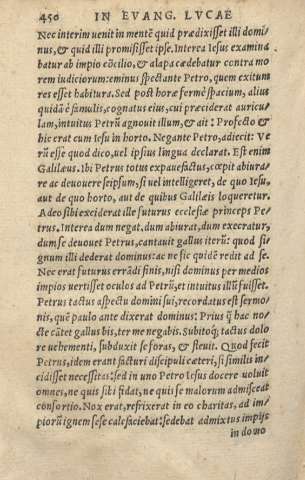 450 IN EVANG. LVCAE
Nec interim uenit in mentē quid prædixisset illi domi
nus, & quid illi promisisset ipse. Interea Iesus examina
batur ab impio cōcilio, & alapa cædebatur contra mo
rem iudiciorum: eminus spectante Petro, quem exitum
res esset habitura. Sed post horæ fermè spacium, alius
quidā è famulis, cognatus eius, cui præciderat auricu
lam, intuitus Petrū agnouit illum, & ait: Profecto &
hic erat cum Iesu in horto. Negante Petro, adiecit: Ve
rū esse quod dico, uel ipsius lingua declarat. Est enim
Galilæus. Ibi Petrus totus expauefactus, cœpit abiura
re ac deuouere seipsum, si uel intelligeret, de quo Iesu,
aut de quo horto, aut de quibus Galilæis loqueretur.
Adeo sibi exciderat ille futurus ecclesiæ princeps Pe
trus. Interea dum negat, dum abiurat, dum execratur,
dum se deuouet Petrus, cantauit gallus iterū: quod si
gnum illi dederat dominus: ac ne sic quidē redit ad se.
Nec erat futurus errādi finis, nisi dominus per medios
impios uertisset oculos ad Petrū, et intuitus illū fuisset.
Petrus tactus aspectu domini sui, recordatus est sermo
nis, quē paulo ante dixerat dominus: Prius q̄ hac no
cte cātet gallus bis, ter me negabis. Subitoq; tactus dolo
re uehementi, subduxit se foras, & fleuit. Quod fecit
Petrus, idem erant facturi discipuli cæteri, si similis in
cidisset necessitas: sed in uno Petro Iesus docere uoluit
omnes, ne quis sibi fidat, ne quis se malorum admisceat
consortio. Nox erat, refrixerat in eo charitas, ad im
piorū ignem sese calefaciebat: sedebat admixtus impijs
in domo